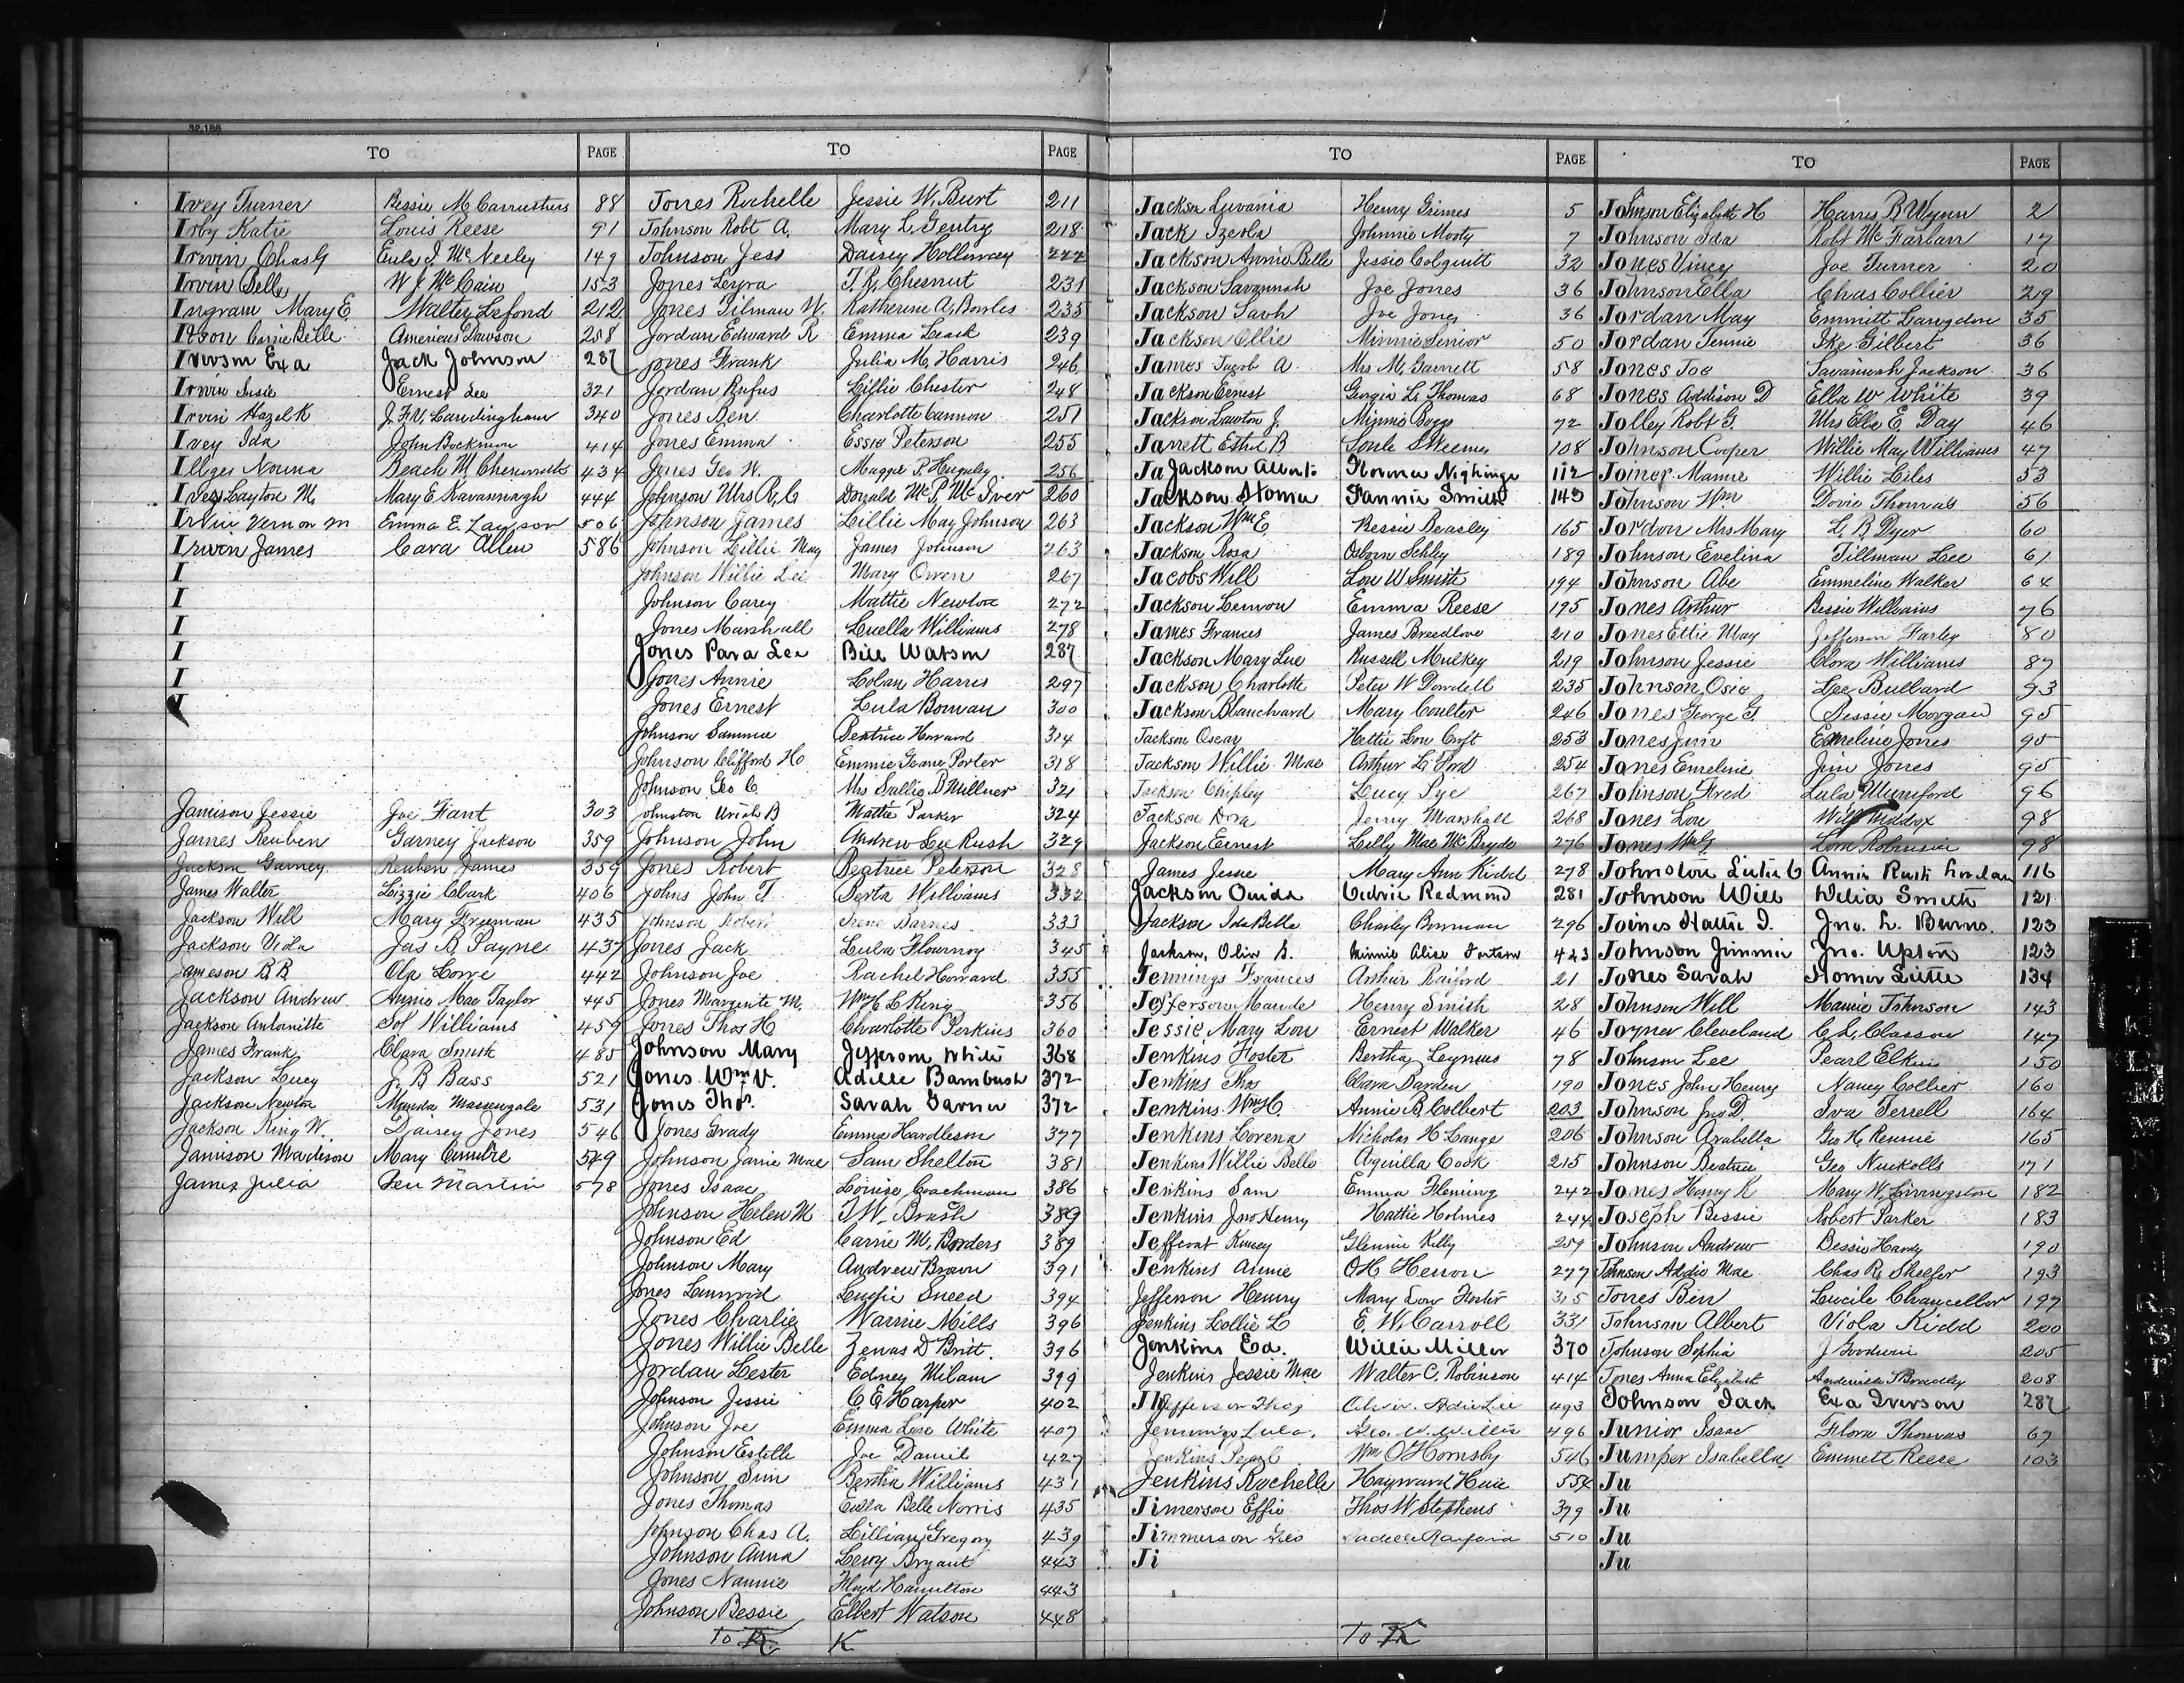 32.188
TO PAGE
Ivey Turner Bessie M Carruthers 88
Irby Katie Louis Reese 91
Irwin Chas G Eula I McNeeley 149
Irvin Belle W J McCain 153
Ingram Mary E. Walter Lefond 212
Itson Carrie Belle Americus Dawson 258
Iverson Exa Jack Johnson 287
Irwin Susie Ernest Lee 321
Irvin Hazel K J. F. V. Candingham 340
Ivey Ida John Bockman 414
Illges Norma Beach M Chenowith 434
Ivey Layton M. Mary E Kavannagh 444
Irvin Vernon M Emma E. Lawson 506
Irwin James Cara Allen 586
I
I
I
I
I
I
Jamison Jessie Joe Fant 303
James Reuben Garney Jackson 359
Jackson Garney Reuben James 359
James Walter Lizzie Clark 406
Jackson Will Mary Freeman 435
Jackson Vida Jas B Payne 437
Jameson B.B. Ola Lowe 442
Jackson Andrew Annie Mae Taylor 445
Jackson Antoinette Sol Williams 459
James Frank Clara Smith 485
Jackson Lucy J. B Bass 521
Jackson Newton Manda Massengale 531
Jackson King W. Daisey Jones 546
Jamison Madison Mary 549
James Julia Martin 578
TO PAGE
Jones Rochelle Jessie W. Burt 211
Johnson Robt A. Mary L Gentry 218
Johnson Jess Daisey Holloway 222
Jones T. R. Chesnut 231
Jones Tilman W. Katherine A. Bowles 235
Jordan Edward R Emma Leach 239
Jones Frank Julia M. Harris 246
Jordan Rufus Lillie Chester 248
Jones Ben Charlotte Cannon 251
Jones Emma Essie Peterson 255
Jones Geo W. Maggie P. Huguley 256
Johnson Mrs R. C Donald McP. McIver 260
Johnson James Lillie May Johnson 263
Johnson Lillie May James Johnson 263
Johnson Willie Lee Mary Owen 267
Johnson Carey Mattie Newton 272
Jones Marshall Luella Williams 278
Jones Para Lee Bill Watson 287
Jones Annie Harris 297
Jones Ernest Lula Bowman 300
Johnson Sammie Beatrice Howard 314
Johnson Clifford H. Emmie Porter 318
Johnson Geo C. Mrs Sallie B Millner 321
Johnston Uriah B Mattie Parker 324
Johnson John Andrew Lee Rush 329
Jones Robert Beatrice Peterson 328
Johns John T. Berta Williams 332
Johnson Robert Irene Barnes 333
Jones Jack Lula Flournoy 345
Johnson Joe Rachel Howard 355
Jones Margurite M. Wm C L King 356
Jones Thos H Charlotte Perkins 360
Johnson Mary Jefferson White 368
Jones Wm V. Adelle Bambush 372
Jones Thos. Sarah Garner 372
Jones Grady Emma Hardleson 377
Johnson Janie Mae Sam Shelton 381
Jones Isaac Louise Coachman 386
Johnson Helen M J W. Brash 389
Johnson Ed Carrie M. Borders 389
Johnson Mary Andrew Brown 391
Jones Sneed 394
Jones Charlie Warnie Mills 396
Jones Willie Belle Zenas D Britt. 396
Jordan Lester Edney Milam 399
Johnson Jessie C. E Harper 402
Johnson Joe Emma Lise White 407
Johnson Estelle Joe Daniel 427
Johnson Sim Bertha Williams 431
Jones Thomas Belle Norris 435
Johnson Chas A. Lillian Gregory 439
Johnson Anna Leroy Bryant 443
Jones Nannie Floyd Hamilton 443
Johnson Bessie Elbert Watson 448
To K. K
TO PAGE
Jackson Luvania Henry Grimes 5
Jack Izeola Johnnie Mooty 7
Jackson Annie Belle Jessie Colquitt 32
Jackson Savannah Joe Jones 36
Jackson Sarh Joe Jones 36
Jackson Ollie Minnie Senior 50
James Jacob A. Mrs M. Garrett 58
Jackson Ernest Georgia L. Thomas 68
Jackson Lawton J. Minnie Boggs 72
Jarrett Ethel B Soule S Weems 108
Ja Jackson Alberta 112
Jackson Homer Fannie Smith 143
Jackson Wm E. Bessie Beasley 165
Jackson Rosa Osborn Schley 189
Jacobs Will Lou W Smith 194
Jackson Lemon Emma Reese 195
James Frances James Breedlove 210
Jackson Mary Lue Russell Mulkey 219
Jackson Charlotte Peter W Dowdell 235
Jackson Blanchard Mary Coulter 246
Jackson Oscar Hattie Lou Croft 253
Jackson Willie Mae Arthur L. Ford 254
Jackson Chipley Lucy Pye 267
Jackson Dora Jerry Marshall 268
Jackson Ernest Lilly Mae McBryde 276
James Jessie Mary Ann Kidd 278
Jackson Ouida Cedric Redmond 281
Jackson Ida Belle Charley Bowman 296
Jackson, Oliver S. Minnie Alice 423
Jennings Frances Arthur Raiford 21
Jefferson Maude Henry Smith 28
Jessie Mary Lou Ernest Walker 46
Jenkins Foster Bertha 78
Jenkins Thos Clara Darden 190
Jenkins Wm H. Annie B. Colbert 203
Jenkins Lorena Nicholas H Lange 206
Jenkins Willie Belle Aquilla Cook 215
Jenkins Sam Emma Fleming 242
Jenkins Jno Henry Hattie Holmes 244
Jeffcoat Kinsey Glennie Kelly 259
Jenkins Annie O H Herron 277
Jefferson Henry Mary Lou Foster 315
Jenkins Lollie L E. W. Carroll 331
Jenkins Ed. Willie Miller 370
Jenkins Jessie Mae Walter C. Robinson 414
Jefferson Thos 493
Jennings Lula. Geo. W. Willis 496
Jenkins Pearl Wm O Hornsby 546
Jenkins Rochelle Hayward Huie 554
Jimerson Effie Thos W Stephens 379
Jimmerson Geo 510
Ji
To K
TO PAGE
Johnson Elizabeth H Harris B Wynn 2
Johnson Ida Robt McFarlan 17
Jones Viney Joe Turner 20
Johnson Ella Chas Collier 29
Jordan May Emmett Langdon 35
Jordan Jennie Ike Gilbert 36
Jones Joe Savannah Jackson 36
Jones Addison D Ella W White 39
Jolley Robt G. Mrs Ella E. Day 46
Johnson Cooper Willie May Williams 47
Joiner Mamie Willie Liles 53
Johnson Wm Dovie Thomas 56
Jordon Mrs Mary L. B Dyer 60
Johnson Evelina Tillman Lee 61
Johnson Abe Emmeline Walker 64
Jones Arthur Bessie Williams 76
Jones Ettie May Jefferson Farley 80
Johnson Jessie Clora Williams 87
Johnson Osie Lee Bullard 93
Jones George G. Bessie Morgan 95
Jones Jim Emeline Jones 95
Jones Emeline Jim Jones 95
Johnson Fred Lula Mumford 96
Jones Lou Will Maddox 98
Jones Wm G. Lora Robinson 98
Johnston Lutie C Annie Ruth 116
Johnson Will Delia Smith 121
Joines Hattie I. Jno. L. Burns. 123
Johnson Jimmie Jno. Upton 123
Jones Sarah Homer Little 134
Johnson Will Mamie Johnson 143
Joyner Cleveland C. L. Classon 147
Johnson Lee Pearl Elkins 150
Jones John Henry Nancy Collier 160
Johnson Jno D. Iva Terrell 164
Johnson Arabella Geo H. Rennie 165
Johnson Beatrice Geo Nuckolls 171
Jones Henry K Mary W. Livingston 182
Joseph Bessie Robert Parker 183
Johnson Andrew Bessie Hardy 190
Johnson Addie Mae Chas R. Shefer 193
Jones Ben Lucile Chancellor 197
Johnson Albert Viola Kidd 200
Johnson Sophia J Goodwin 205
Jones Anna Elizabeth Bradley 208
Johnson Jack Exa Iverson 287
Junior Isaac Flora Thomas 67
Jumper Isabella Emmett Reese 103
Ju
Ju
Ju
Ju